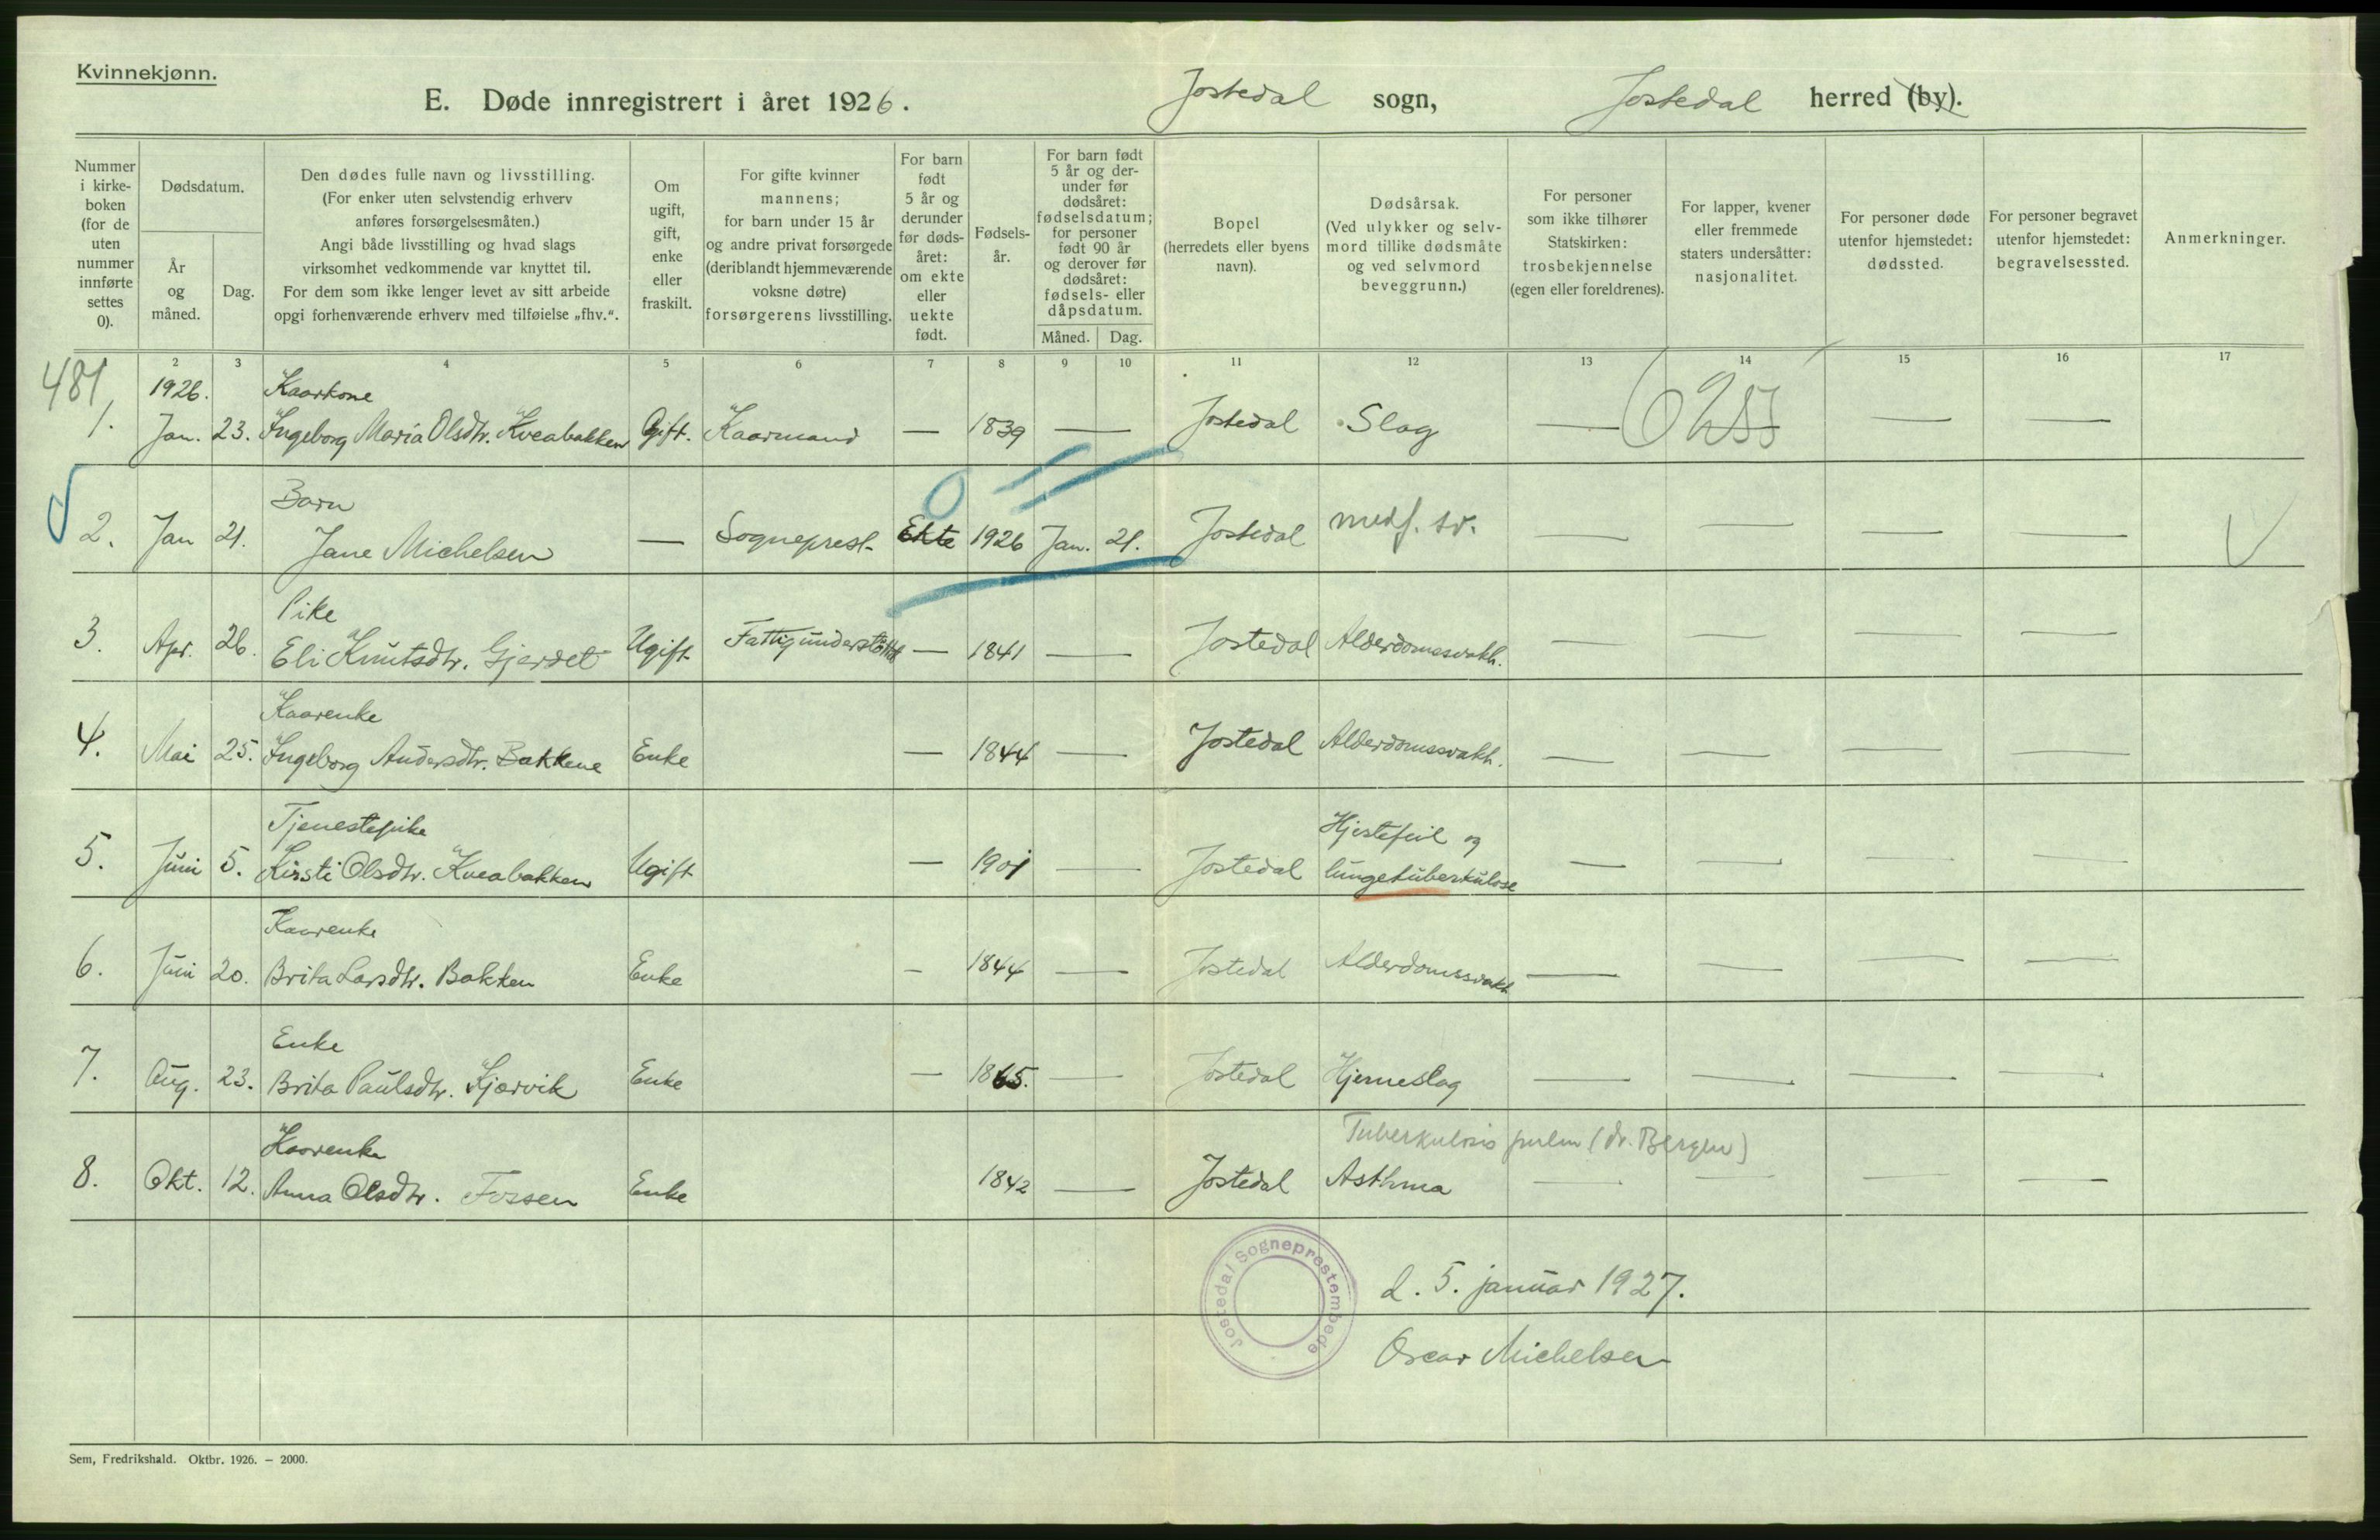 Kvinnekjønn.
E. Døde innregistrert i året 1926.
Jostedal sogn, Jostedal herred (by).
Nummer i kirke- boken (for de uten nummer innførte settes 0).
Dødsdatum.
År og måned.
Dag.
Den dødes fulle navn og livsstilling.
(For enker uten selvstendig erhverv
anføres forsørgelsesmåten.)
Angi både livsstilling og hvad slags
virksomhet vedkommende var knyttet til.
For dem som ikke lenger levet av sitt arbeide
opgi forhenværende erhverv med tilføielse „fhv.“.
Om ugift, gift, enke eller fraskilt.
For gifte kvinner
mannens;
for barn under 15 år
og andre privat forsørgede
(deriblandt hjemmeværende
voksne døtre)
forsørgerens livsstilling.
For barn født 5 år og derunder før døds- året: om ekte eller uekte født.
Fødsels- år.
For barn født 5 år og der- under før dødsåret: fødselsdatum; for personer født 90 år og derover før dødsåret: fødsels- eller dåpsdatum.
Måned. Dag.
Bopel
(herredets eller byens
navn).
Dødsårsak.
(Ved ulykker og selv-
mord tillike dødsmåte
og ved selvmord
beveggrunn.)
For personer
som ikke tilhører
Statskirken:
trosbekjennelse
(egen eller foreldrenes).
For lapper, kvener
eller fremmede
staters undersåtter:
nasjonalitet.
For personer døde
utenfor hjemstedet:
dødssted.
For personer begravet
utenfor hjemstedet:
begravelsessted.
Anmerkninger.
2 3 4 5 6 7 8 9 10 11 12 13 14 15 16 17
481 1926. Kaarkone
1. Jan. 23. Ingeborg Maria Olsdtr. Kveabakken Gift. Kaarmand — 1839 — Jostedal Slag — — —
Barn
2. Jan 21. Jane Michelsen — Sogneprest Ekte 0 1926 Jan. 21. Jostedal medf. sv. — — — —
Pike
3. Apr. 26. Eli Knutsdtr. Gjerdet Ugift Fattigunderstöttet — 1841 — Jostedal Alderdomssvakh. — — — —
Kaarenke
4. Mai 25. Ingeborg Andersdtr. Bakkene Enke — 1844 — Jostedal Alderdomssvakh. — — — —
Tjenestepike Hjertefeil og
5. Juni 5. Kirsti Olsdtr. Kveabakken Ugift — 1901 — Jostedal lungetuberkulose — — — —
Kaarenke
6. Juni 20. Brita Larsdtr. Bakken Enke — 1844 — Jostedal Alderdomssvakh — — — —
Enke
7. Aug. 23. Brita Paulsdtr. Kjærvik Enke — 1865. — Jostedal Hjerneslag — — — —
Kaarenke Tuberkulosis pulm (dr. Bergen)
8. Okt. 12. Anna Olsdtr. Fossen Enke 1842 — Jostedal Asthma — — — —
Jostedal Sogneprestembede
d. 5. januar 1927.
Oscar Michelsen
Sem, Fredrikshald. Oktbr. 1926. – 2000.